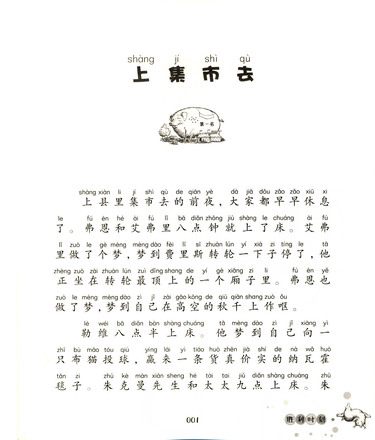 shàng jí shì qù
上集市去
第一名
shàng xiàn lǐ jí shì qù de qián yè dà jiā dōu zǎo zǎo xiū xi
上县里集市去的前夜，大家都早早休息
le fú ēn hé ài fú lǐ bā diǎn zhōng jiù shàng le chuáng ài fú
了。弗恩和艾弗里八点钟就上了床。艾弗
lǐ zuò le gè mèng mèng dào fèi lǐ sī zhuàn lún yí xià zi tíng le tā
里做了个梦，梦到费里斯转轮一下子停了，他
zhèng zuò zài zhuàn lún zuì dǐng shang de yí gè xiāng zi lǐ fú ēn yě
正坐在转轮最顶上的一个厢子里。弗恩也
zuò le mèng mèng dào zì jǐ zài gāo kōng de qiū qiān shang zuò ǒu
做了梦，梦到自己在高空的秋千上作呕。
lè wéi bā diǎn bàn shàng chuáng tā mèng dào zì jǐ xiàng yì
勒维八点半上床。他梦到自己向一
zhī bù māo tóu qiú yíng lái yì tiáo huò zhēn jià shí de nà wǎ huò
只布猫投球，赢来一条货真价实的纳瓦霍
tǎn zi zhū kè màn xiān sheng hé tài tai jiǔ diǎn shàng chuáng zhū
毯子。朱克曼先生和太太九点上床。朱
001
胜利时刻